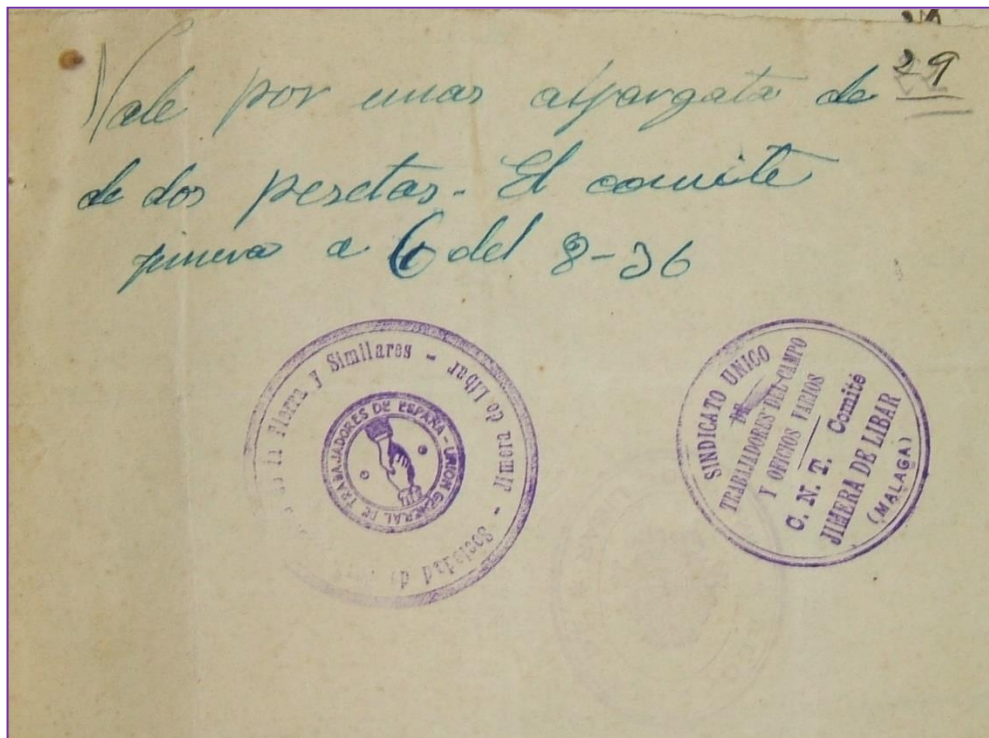 29
Vale por unas alpargata de
de dos pesetas. El comite
jimera a 6 del 8-36
Sociedad de la Tierra y Similares - Jimera de Libar -
UNION GENERAL DE TRABAJADORES DE ESPAÑA -
SINDICATO UNICO
TRABAJADORES DEL CAMPO
Y OFICIOS VARIOS
C. N. T. Comité
JIMERA DE LIBAR
(MALAGA)